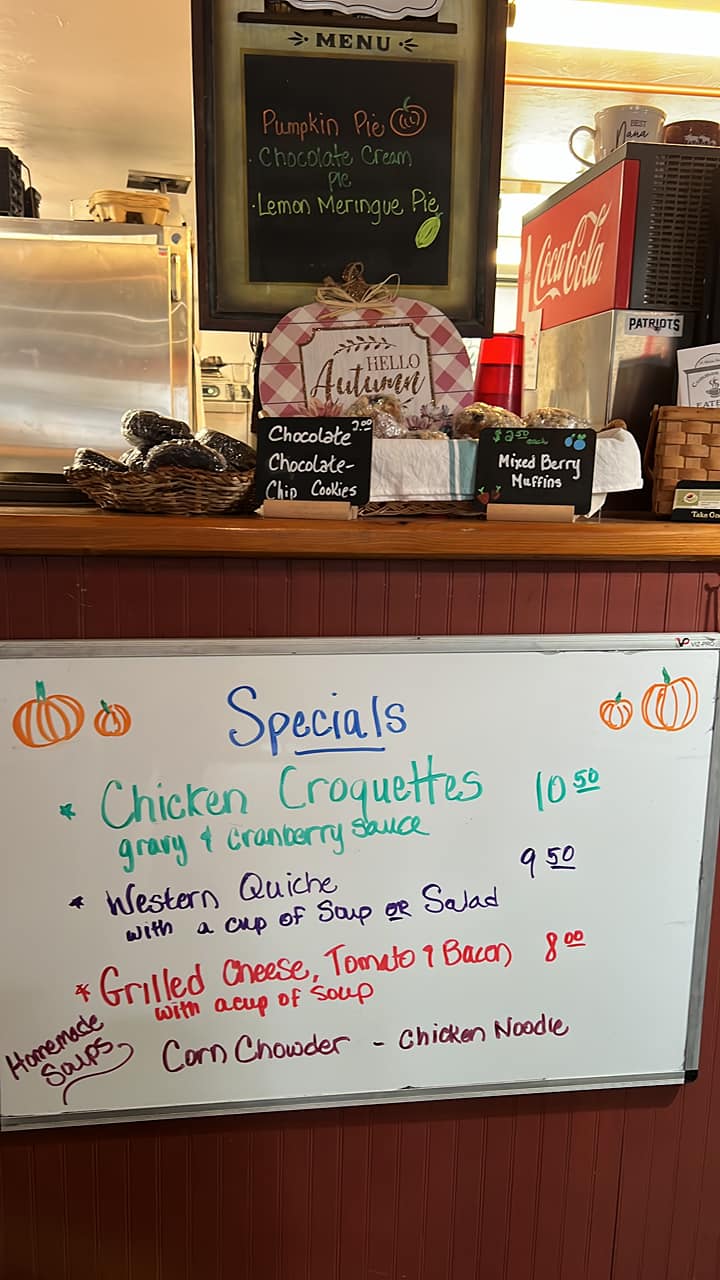 MENU
Pumpkin Pie
Chocolate Cream
Pie
Lemon Meringue Pie
BEST
Nana
Coca-Cola
PATRIOTS
HELLO
Autumn
Chocolate 2.00
Chocolate-
Chip Cookies
$2.50 each
Mixed Berry
Muffins
EATE
Take Ou
VIZ-PRO
Specials
* Chicken Croquettes 10 50
gravy & cranberry sauce
* Western Quiche 9 50
with a cup of Soup OR Salad
* Grilled Cheese, Tomato & Bacon 8 00
with a cup of soup
Homemade
Soups
Corn Chowder - Chicken Noodle